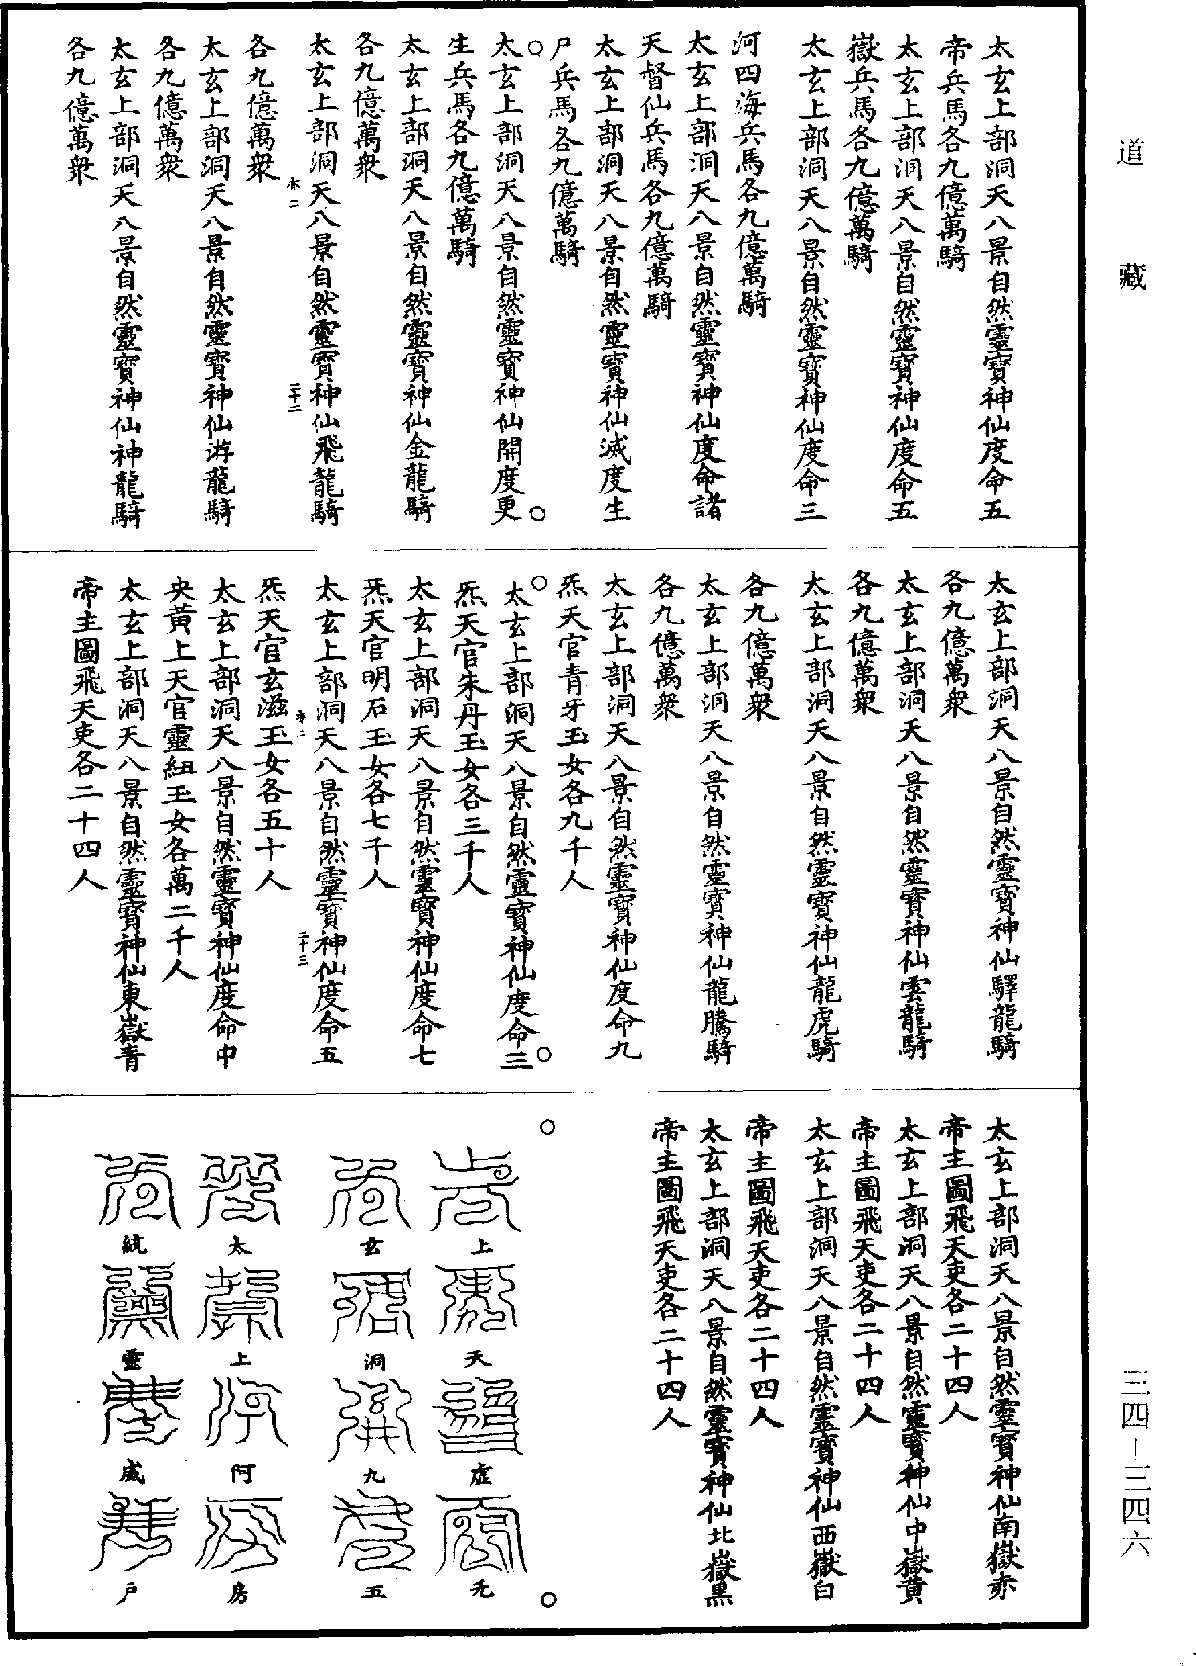 太玄上部洞天八景自然靈寶神仙度命五
帝兵馬各九億萬騎
太玄上部洞天八景自然靈寶神仙度命五
嶽兵馬各九億萬騎
太玄上部洞天八景自然靈寶神仙度命三
河四海兵馬各九億萬騎
太玄上部洞天八景自然靈寶神仙度命諸
天督仙兵馬各九億萬騎
太玄上部洞天八景自然靈寶神仙滅度生
尸兵馬各九億萬騎
太玄上部洞天八景自然靈寶神仙開度更
生兵馬各九億萬騎
太玄上部洞天八景自然靈寶神仙金龍騎
各九億萬衆
太玄上部洞天八景自然靈寶神仙飛龍騎
二十二
各九億萬衆
太玄上部洞天八景自然靈寶神仙游龍騎
各九億萬衆
太玄上部洞天八景自然靈寶神仙神龍騎
各九億萬衆
太玄上部洞天八景自然靈寶神仙驛龍騎
各九億萬衆
太玄上部洞天八景自然靈寶神仙雲龍騎
各九億萬衆
太玄上部洞天八景自然靈寶神仙龍虎騎
各九億萬衆
太玄上部洞天八景自然靈寶神仙龍騰騎
各九億萬衆
太玄上部洞天八景自然靈寶神仙度命九
炁天官青牙玉女各九千人
太玄上部洞天八景自然靈寶神仙度命三
炁天官朱丹玉女各三千人
太玄上部洞天八景自然靈寶神仙度命七
炁天官明石玉女各七千人
太玄上部洞天八景自然靈寶神仙度命五
二十三
炁天官玄滋玉女各五十人
太玄上部洞天八景自然靈寶神仙度命中
央黃上天官靈紐玉女各萬二千人
太玄上部洞天八景自然靈寶神仙東嶽青
帝主圖飛天吏各二十四人
太玄上部洞天八景自然靈寶神仙南嶽赤
帝主圖飛天吏各二十四人
太玄上部洞天八景自然靈寶神仙中嶽黃
帝主圖飛天吏各二十四人
太玄上部洞天八景自然靈寶神仙西嶽白
帝主圖飛天吏各二十四人
太玄上部洞天八景自然靈寶神仙北嶽黑
帝主圖飛天吏各二十四人
上天虛无
玄洞九五
太上阿房
統靈威戶
道藏
三四-三四六